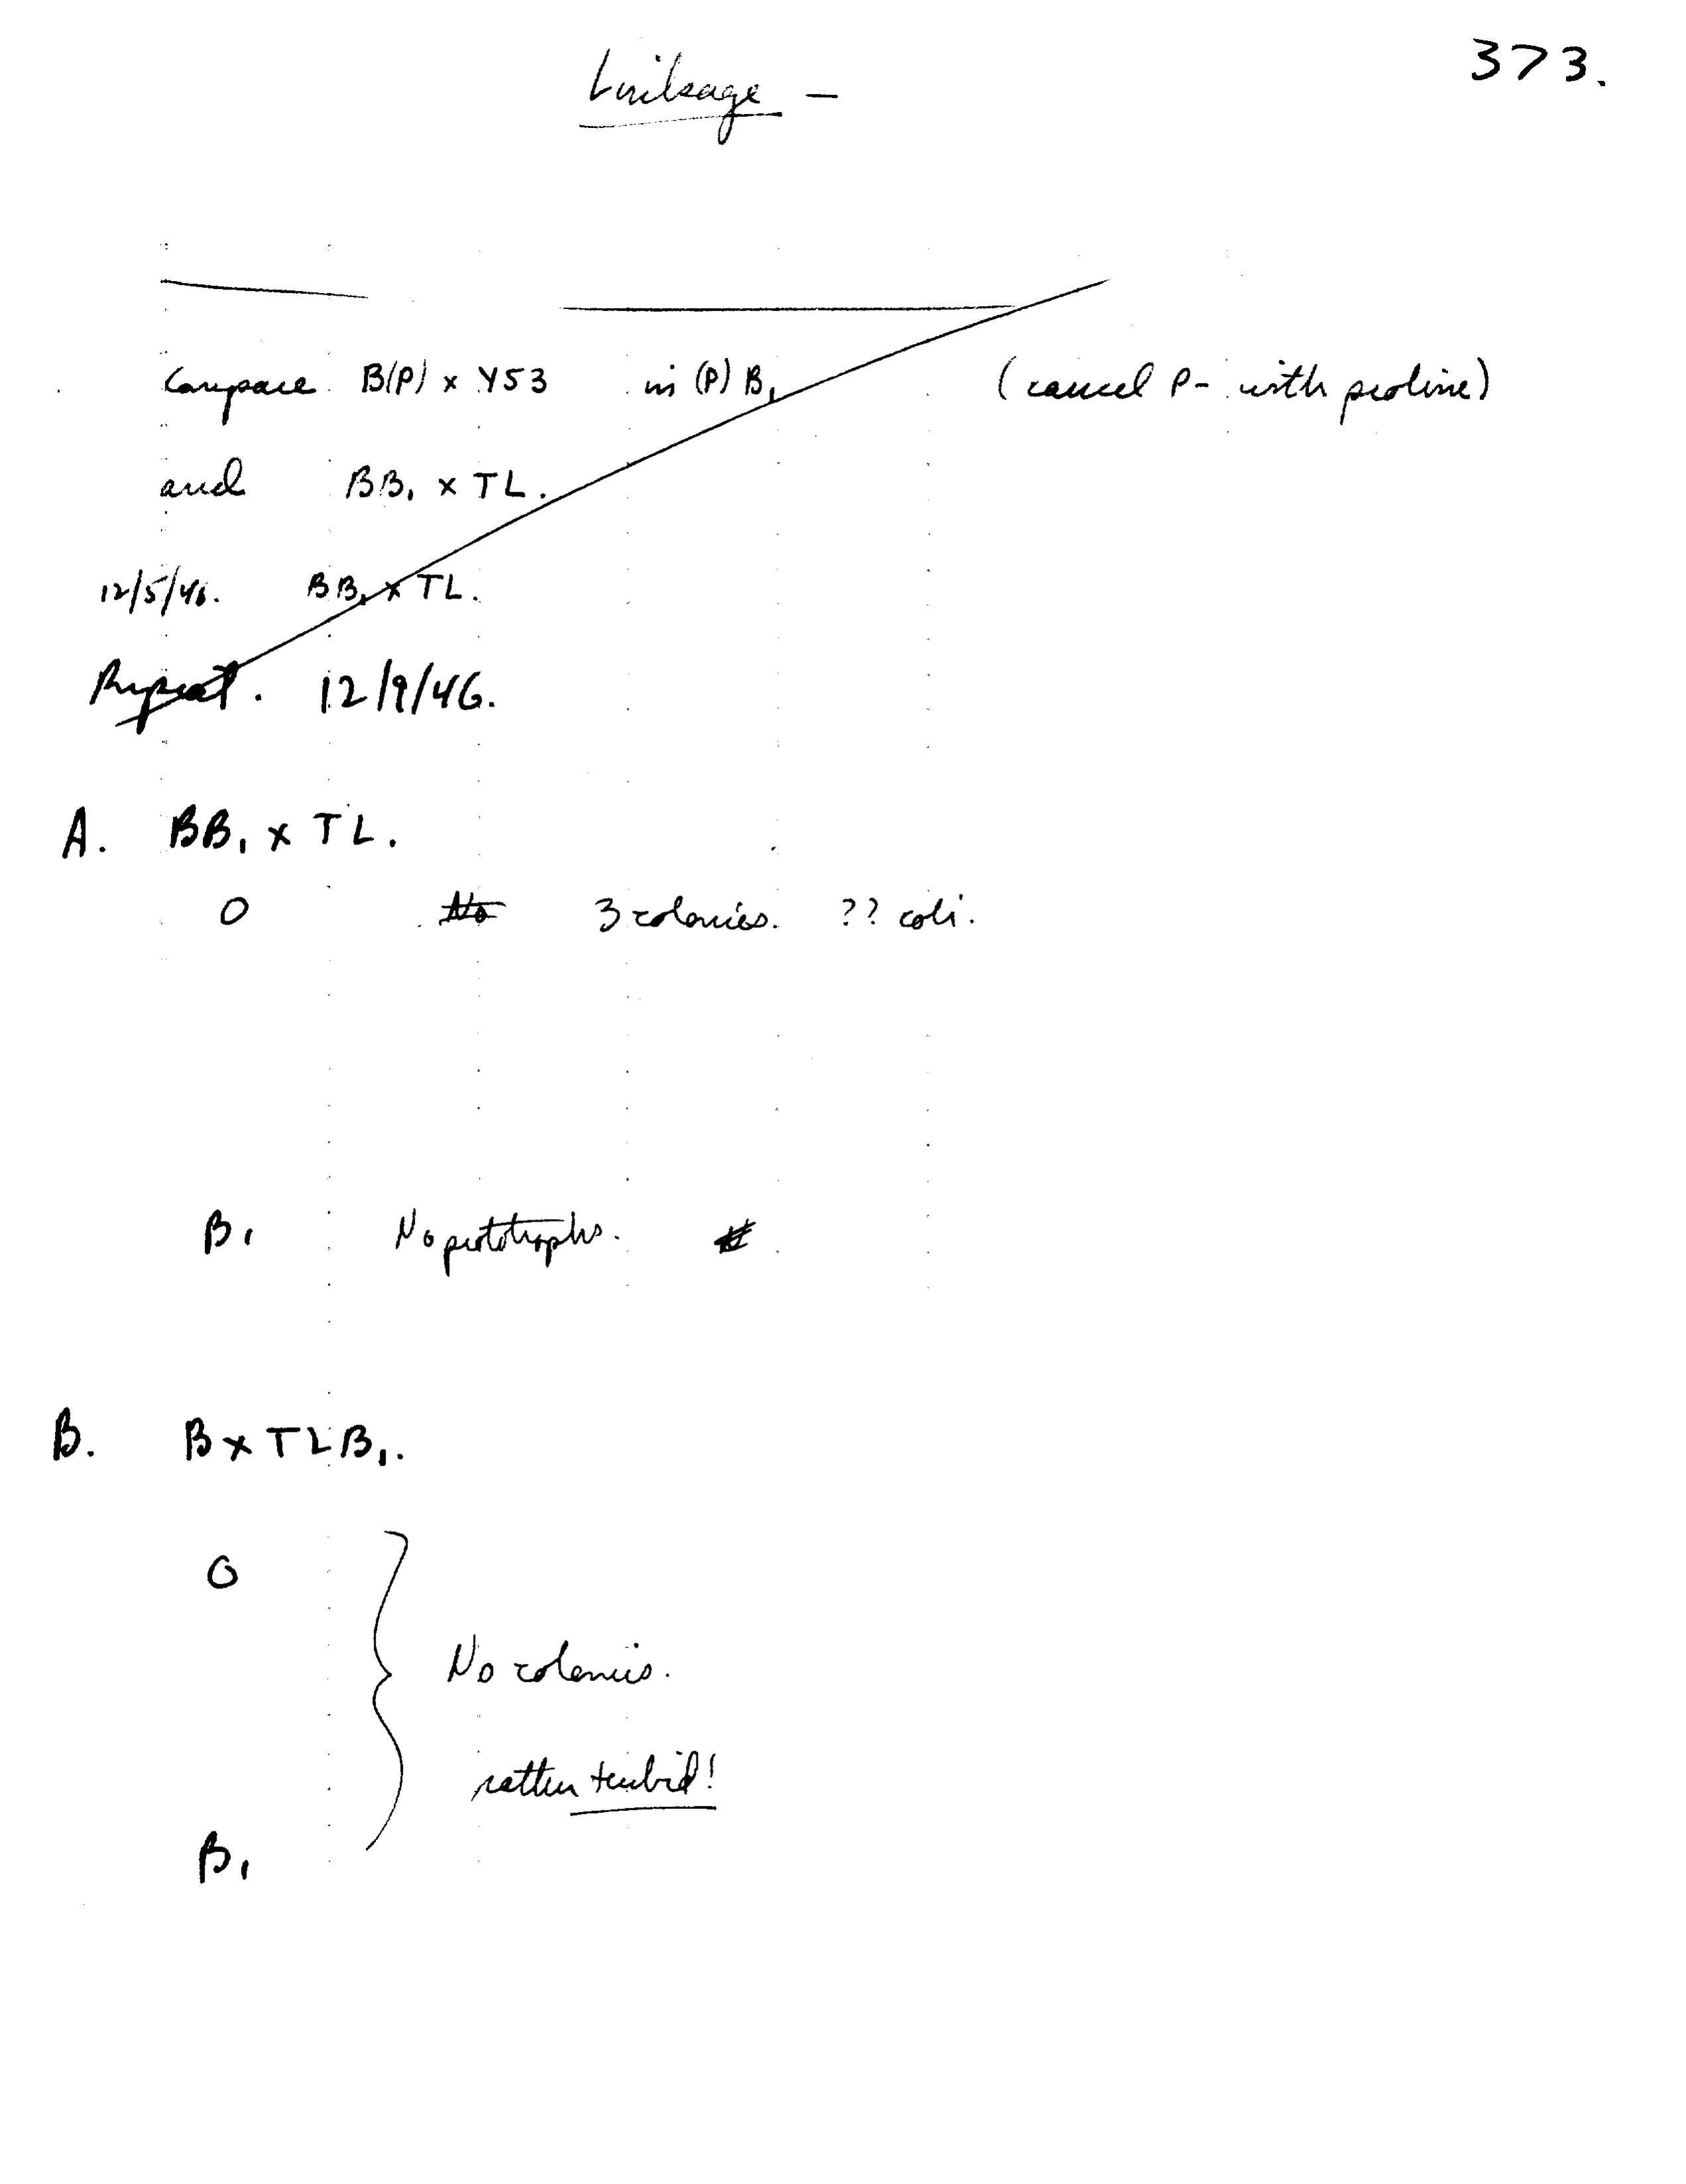 373.
Linkage -
Compare B(P) x Y53 in (P) B1 (cancel P- with proline)
and BB1 x TL.
12/5/46. BB1 x TL.
Repeat. 12/9/46.
A. BB1 x TL.
0 No 3 colonies. ?? coli.
B1 No prototrophs.
B. B x TLB1.
0
No colonies.
rather turbid!
B1